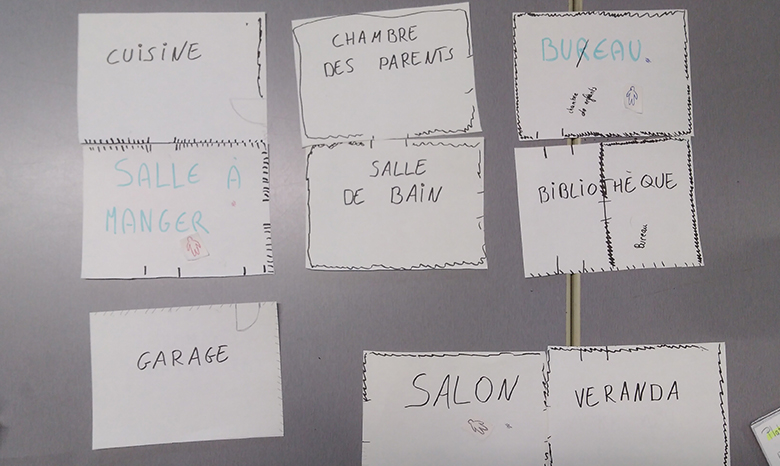 CUISINE
CHAMBRE
DES PARENTS
BUREAU.
chambre
SALLE À
MANGER
SALLE
DE BAIN
BIBLIOTHÈQUE
Bureau
GARAGE
SALON
VERANDA